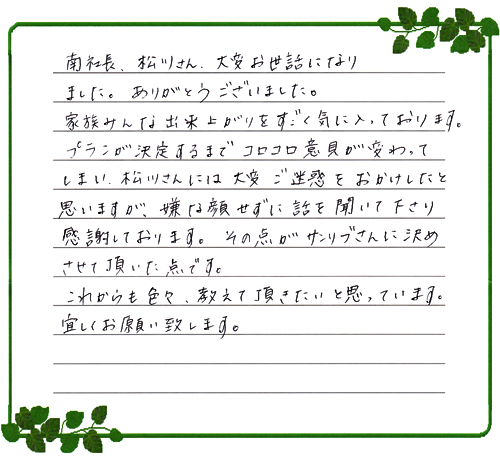 南社長、松川さん、大変お世話になり
ました。ありがとうございました。
家族みんな出来上がりをすごく気に入っております。
プランが決定するまでコロコロ意見が変わって
しまい、松川さんには大変ご迷惑をおかけしたと
思いますが、嫌な顔せずに話を聞いて下さり
感謝しております。その点がサンリブさんに決め
させて頂いた点です。
これからも色々、教えて頂きたいと思っています。
宜しくお願い致します。